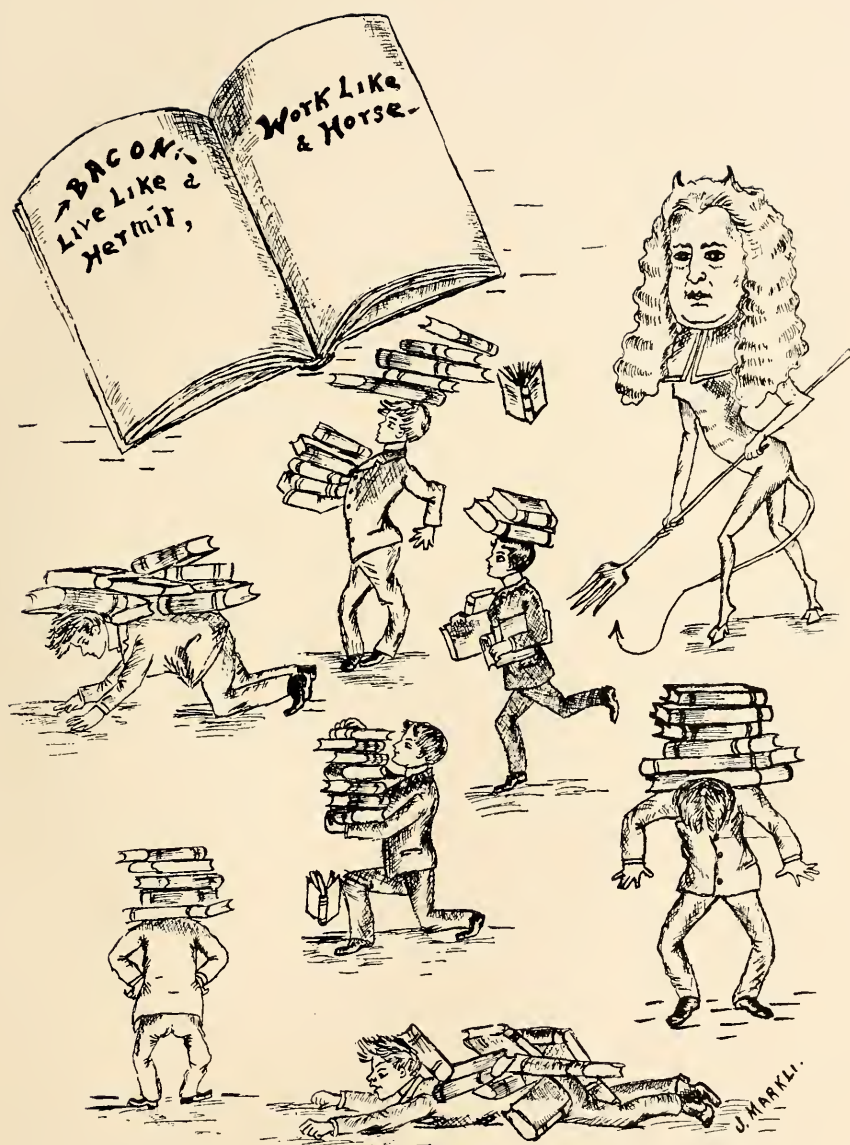 BACON.
Live Like a
Hermit,
Work Like
a Horse-
J. MARKLI.